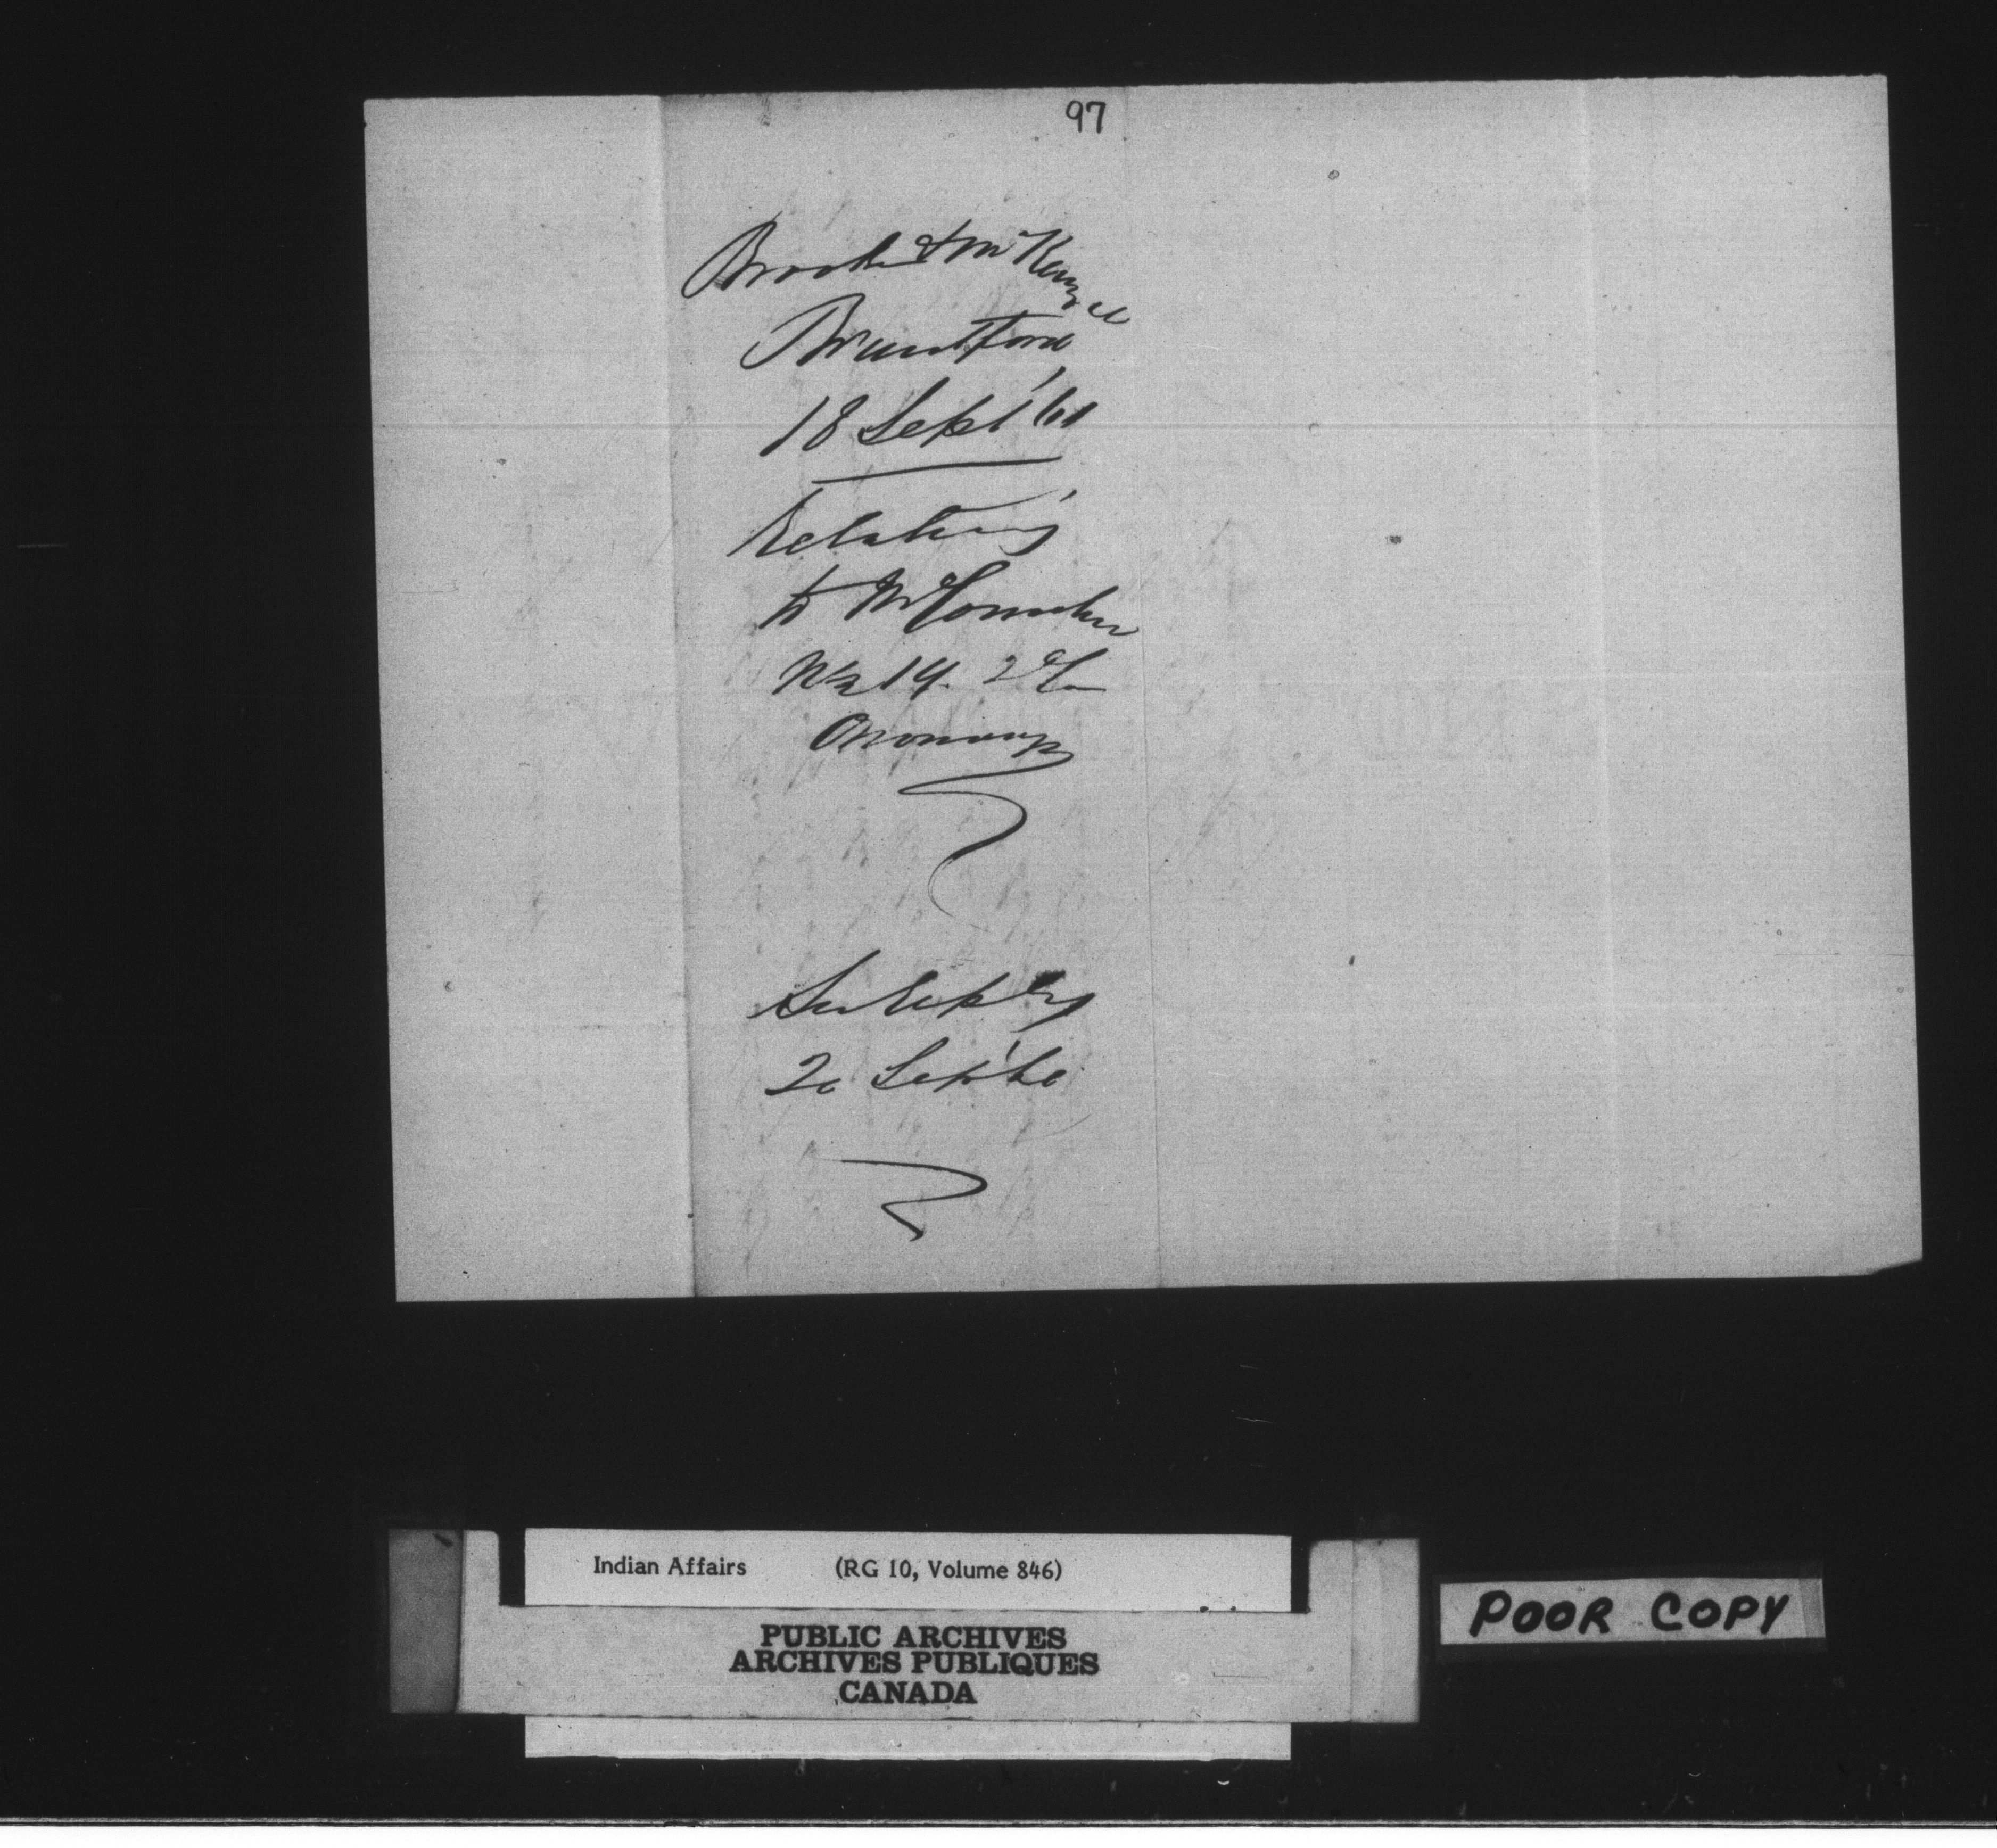 97
Brooke & McKenzie
Brantford
18 Sept '61
Relating
to
N½ 14. 2 Con
Onondaga
See Reply
20 Sept
Indian Affairs (RG 10, Volume 846)
PUBLIC ARCHIVES
ARCHIVES PUBLIQUES
CANADA
POOR COPY